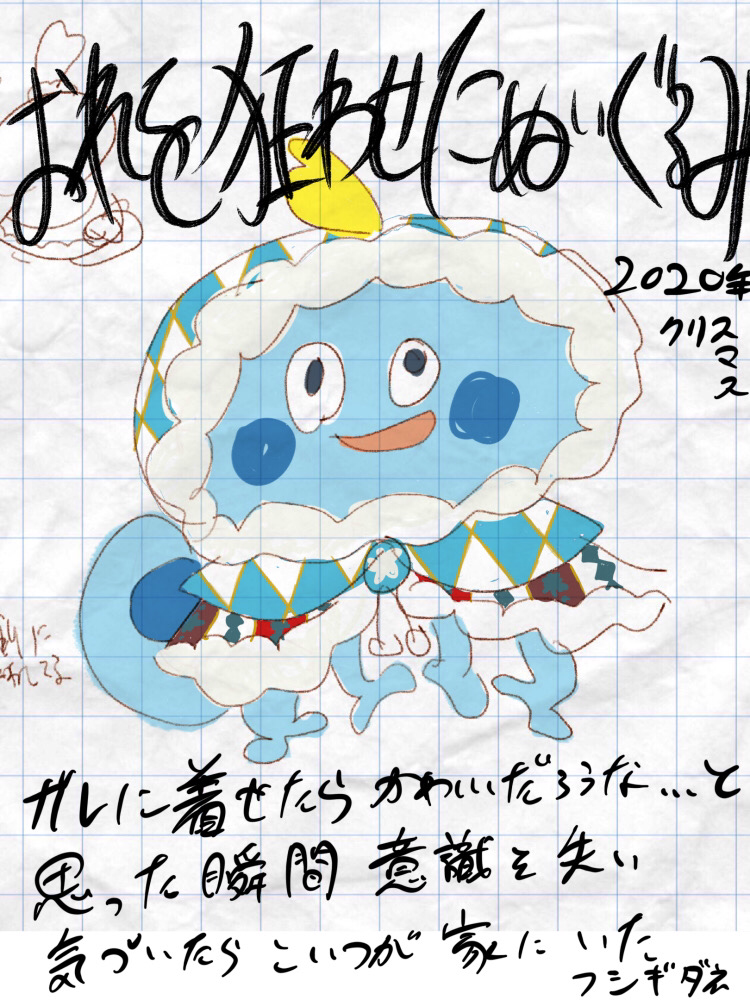 おれを狂わせしにぬいぐるみ
2020年
クリスマス
ガレに着せたらかわいいだろうな...と
思った瞬間 意識を失い
気づいたらこいつが家にいた
フシギダネ